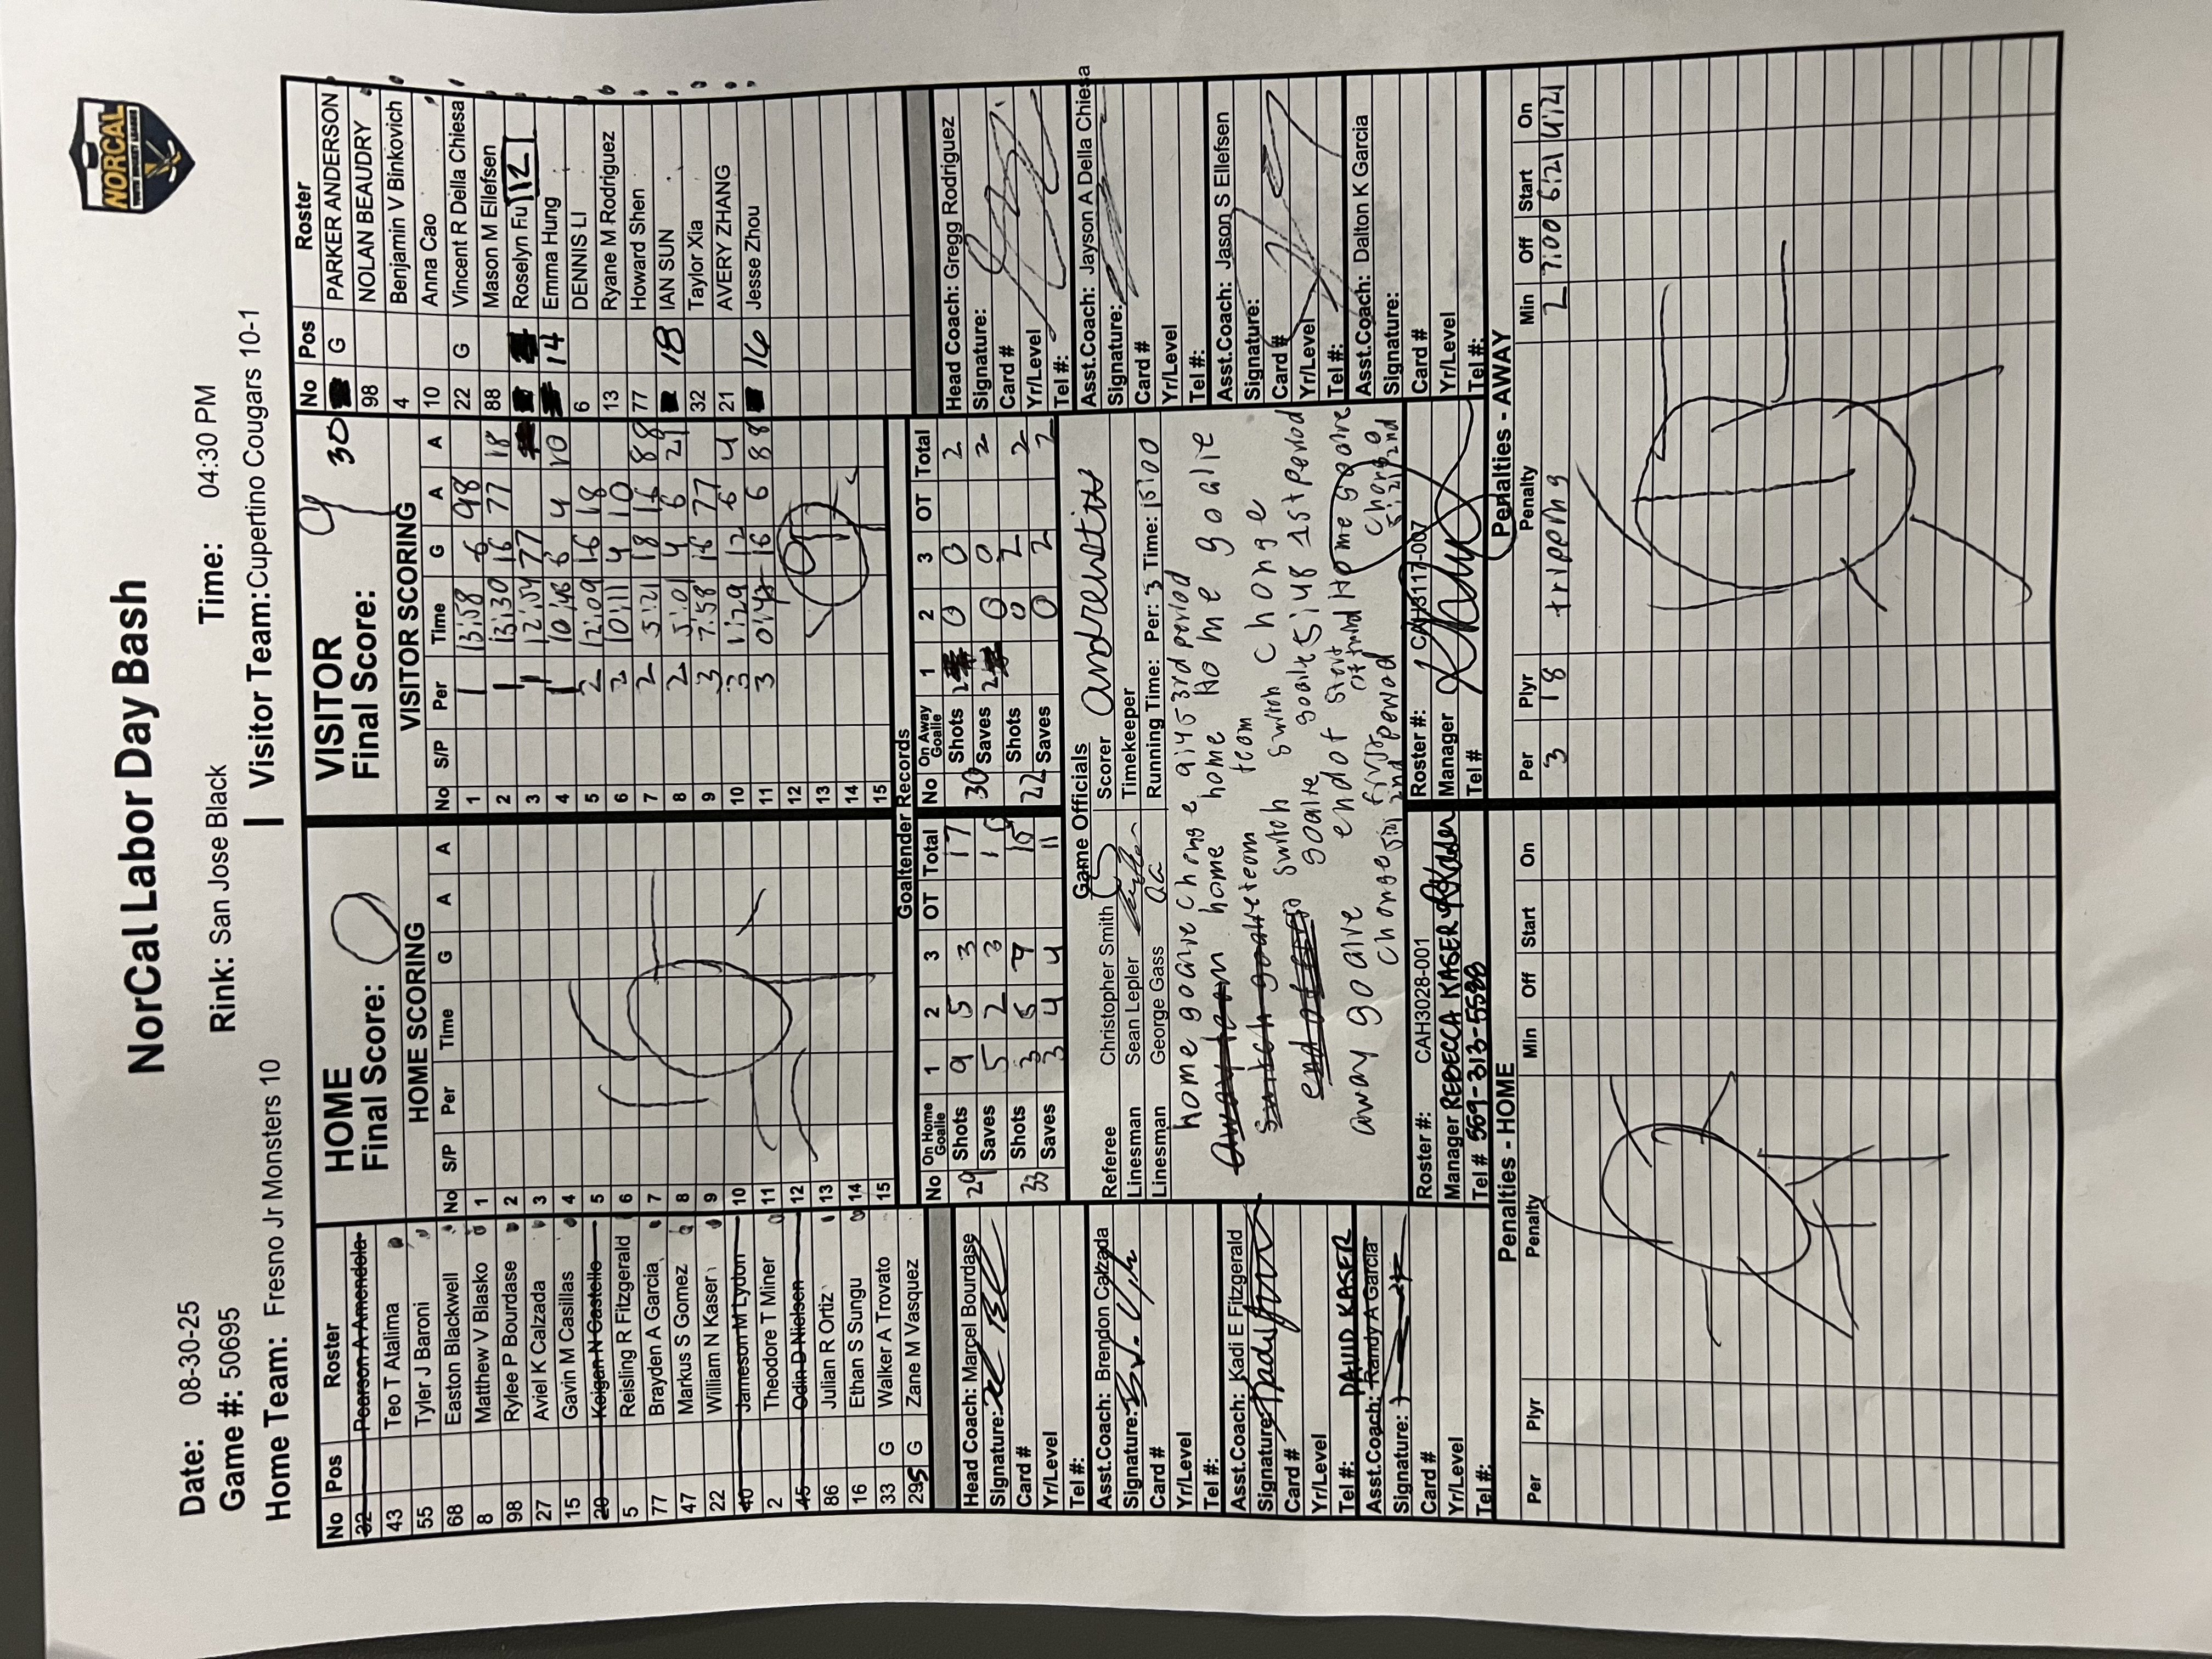 NORCAL
YOUTH HOCKEY LEAGUE
NorCal Labor Day Bash
Date: 08-30-25 Rink: San Jose Black Time: 04:30 PM
Game #: 50695
Home Team: Fresno Jr Monsters 10 | Visitor Team: Cupertino Cougars 10-1
No Pos Roster
32 Pearson A Amendola
43 Teo T Atalima
55 Tyler J Baroni
68 Easton Blackwell
8 Matthew V Blasko
98 Rylee P Bourdase
27 Aviel K Calzada
15 Gavin M Casillas
20 Keigan N Costello
5 Reisling R Fitzgerald
77 Brayden A Garcia
47 Markus S Gomez
22 William N Kaser
40 Jameson M Lydon
2 Theodore T Miner
45 Odin D Nielsen
86 Julian R Ortiz
16 Ethan S Sungu
33 G Walker A Trovato
295 G Zane M Vasquez
HOME
Final Score: 0
HOME SCORING
No S/P Per Time G A A
1
2
3
4
5
6
7
8
9
10
11
12
13
14
15
VISITOR
Final Score: 9
VISITOR SCORING
No S/P Per Time G A A
1 1 13:58 6 98
2 1 13:30 16 77 18
3 1 12:54 77
4 1 10:46 6 4 10
5 2 12:09 16 18
6 2 10:11 4 10
7 2 5:21 18 16 88
8 2 5:01 4 6 21
9 3 7:58 16 77
10 3 1:29 12 6 4
11 3 16 6 88
12 9
13
14
15
No Pos Roster
30 G PARKER ANDERSON
98 NOLAN BEAUDRY
4 Benjamin V Binkovich
10 Anna Cao
22 G Vincent R Della Chiesa
88 Mason M Ellefsen
Roselyn Fu 12
14 Emma Hung
6 DENNIS LI
13 Ryane M Rodriguez
77 Howard Shen
18 IAN SUN
32 Taylor Xia
21 AVERY ZHANG
16 Jesse Zhou
Goaltender Records
No On Home Goalie 1 2 3 OT Total
29 Shots 9 5 3 17
Saves 5 2 3
33 Shots 3 5 7 15
Saves 3 4 4 11
No On Away Goalie 1 2 3 OT Total
30 Shots 2 0 0 2
Saves 2 0 0 2
22 Shots 0 2 2
Saves 0 2 2
Head Coach: Marcel Bourdase
Signature:
Card #
Yr/Level
Tel #:
Asst.Coach: Brendon Calzada
Signature:
Card #
Yr/Level
Tel #:
Asst.Coach: Kadi E Fitzgerald
Signature:
Card #
Yr/Level
Tel #: DAVID KASER
Asst.Coach: Randy A Garcia
Signature:
Card #
Yr/Level
Tel #:
Game Officials
Referee Christopher Smith
Linesman Sean Lepler
Linesman George Gass
Scorer
Timekeeper
Running Time: Per: 3 Time: 15:00
home goalie change 9:45 3rd period
home home goalie
team switch change
away goalie
change
Roster #: CAH3028-001
Manager REBECCA KASER
Tel # 559-313-5588
Roster #: CAH3117-007
Manager
Tel #
Head Coach: Gregg Rodriguez
Signature:
Card #
Yr/Level
Tel #:
Asst.Coach: Jayson A Della Chiesa
Signature:
Card #
Yr/Level
Tel #:
Asst.Coach: Jason S Ellefsen
Signature:
Card #
Yr/Level
Tel #:
Asst.Coach: Dalton K Garcia
Signature:
Card #
Yr/Level
Tel #:
Penalties - HOME
Per Plyr Penalty Min Off Start On
Penalties - AWAY
Per Plyr Penalty Min Off Start On
3 18 tripping 2 7:00 6:21 4:21